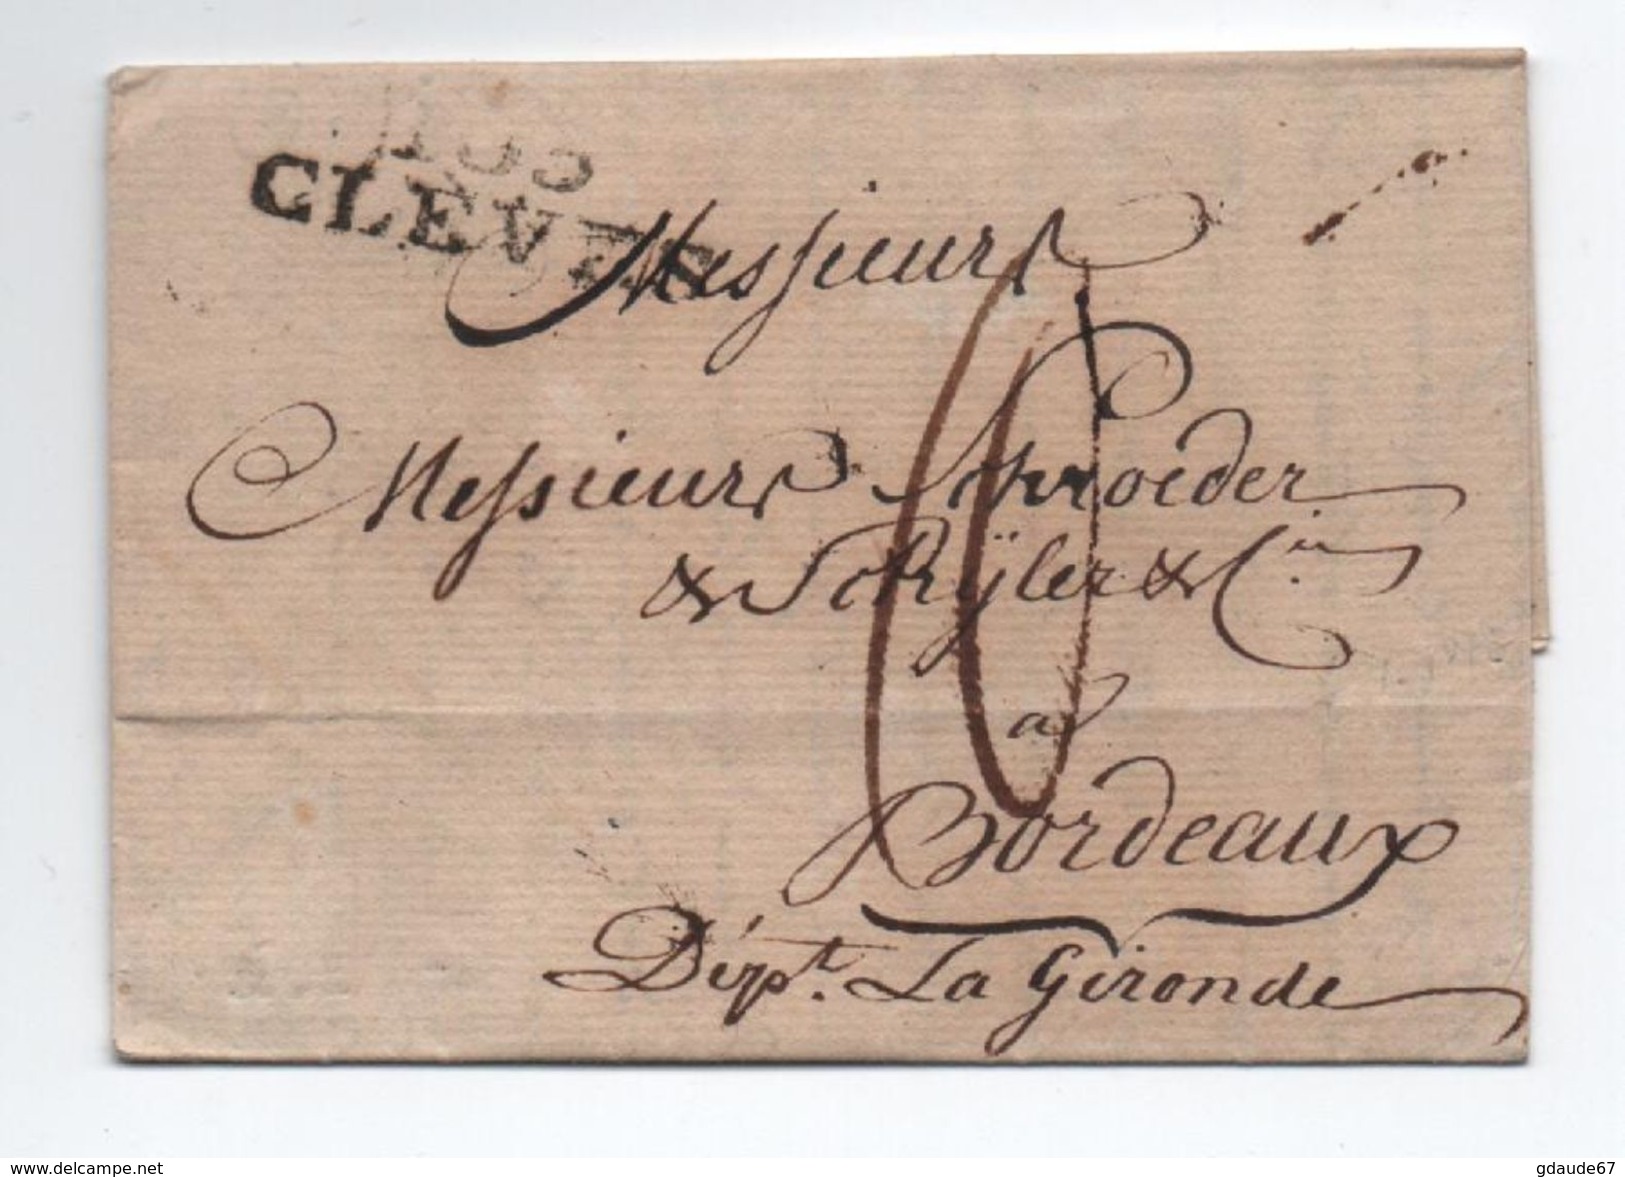 103
CLEVES
Messieurs
Messieurs Schroeder
& Schÿler & C.ie
a
Bordeaux
Dépt. La Gironde
www.delcampe.net
gdaude67